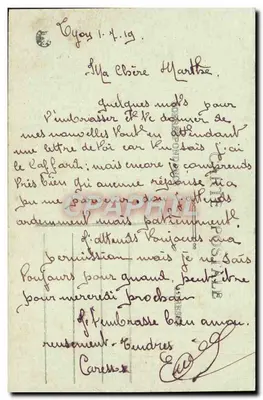 Lyon 1.7.19
Ma Chère Marthe
quelques mots pour
t'embrasser et te donner de
mes nouvelles tout en attendant
une lettre de toi car tu sais j'ai
le Caffard; mais encore je comprends
très bien qu'aucune réponse n'a
pu me parvenir j'attends
ardemment mais patiemment
J'attends toujours ma
permission mais je ne sais
toujours pour quand, peut être
pour mercredi prochain
Je t'embrasse bien amou-
reusement. Tendres
Caresses
CARTE POSTALE
CORRESPONDANCE
CARTAPHIL